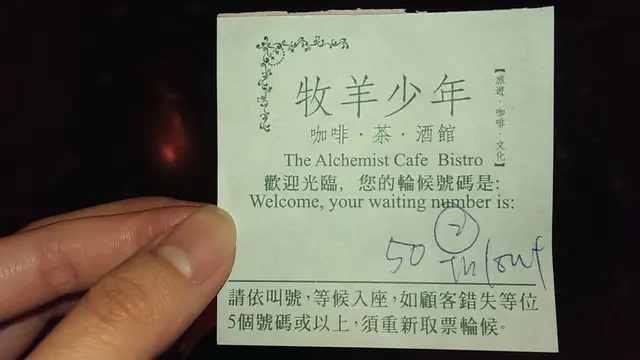 牧羊少年
咖啡·茶·酒館
【旅遊·咖啡·文化】
The Alchemist Cafe Bistro
歡迎光臨, 您的輪候號碼是:
Welcome, your waiting number is:
2
50 In/out
請依叫號,等候入座,如顧客錯失等位
5個號碼或以上,須重新取票輪候。